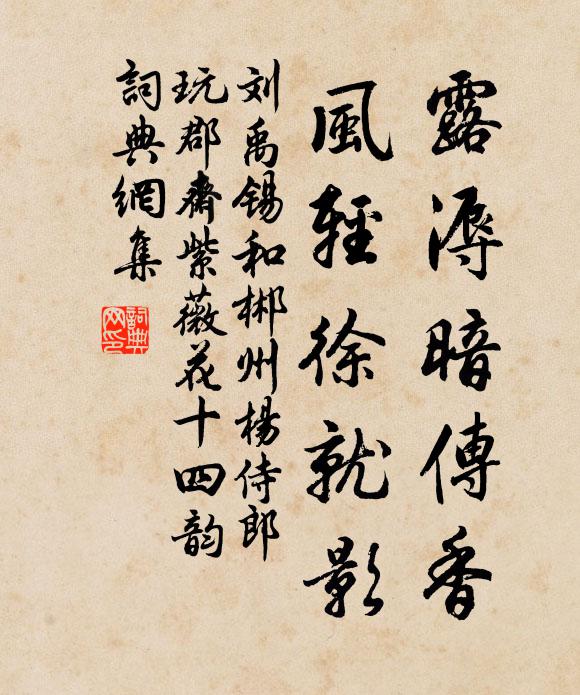 露溽暗傳香
風輕徐就影
刘禹锡和郴州楊侍郎
玩郡齋紫薇花十四韵
詞典網集
詞典网印